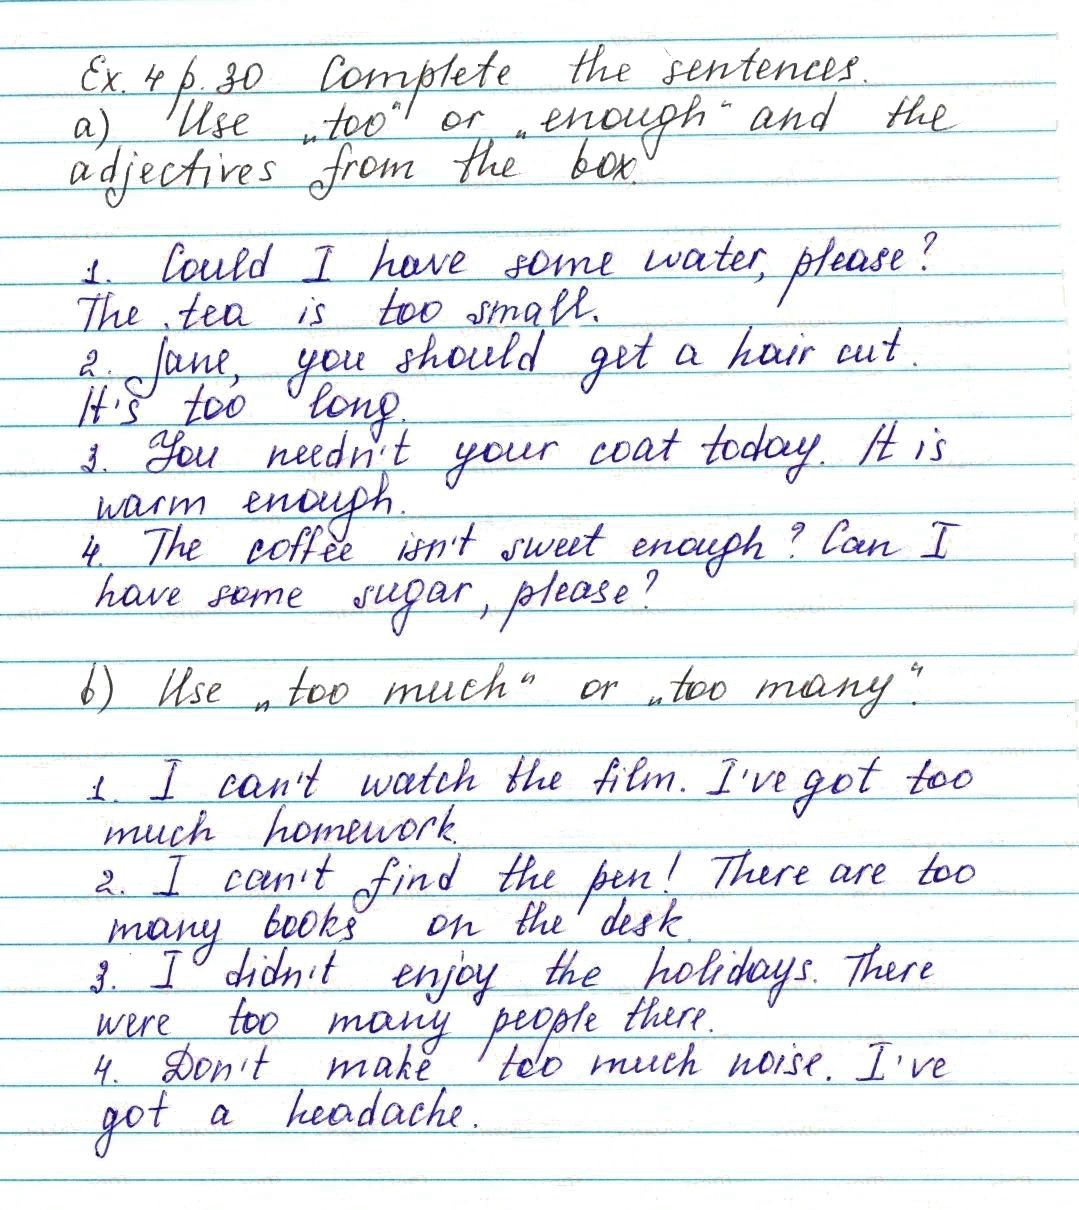 Ex. 4 p. 30 Complete the sentences.
a) Use „too“ or „enough“ and the
adjectives from the box.
1. Could I have some water, please?
The tea is too small.
2. Jane, you should get a hair cut.
It's too long.
3. You needn't your coat today. It is
warm enough.
4. The coffee isn't sweet enough? Can I
have some sugar, please?
b) Use „too much“ or „too many“.
1. I can't watch the film. I've got too
much homework.
2. I can't find the pen! There are too
many books on the desk.
3. I didn't enjoy the holidays. There
were too many people there.
4. Don't make too much noise. I've
got a headache.